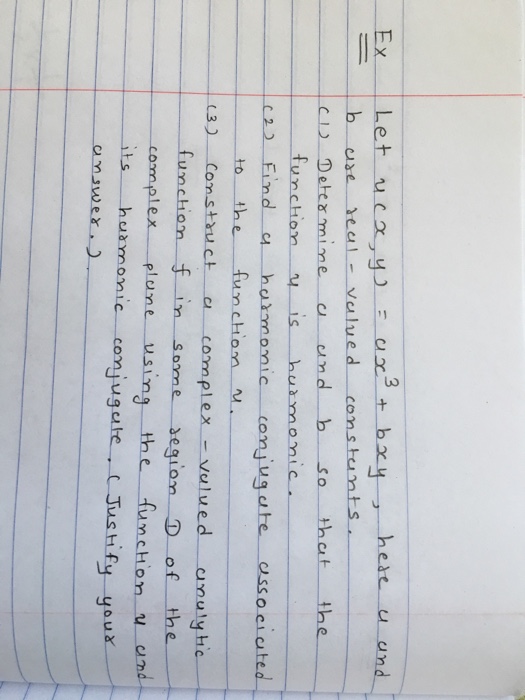 Ex Let u(x,y) = ax³ + bxy, here a and
b are real-valued constants.
(1) Determine a and b so that the
function u is harmonic.
(2) Find a harmonic conjugate associated
to the function u.
(3) Construct a complex-valued analytic
function f in some region D of the
complex plane using the function u and
its harmonic conjugate. (Justify your
answer.)